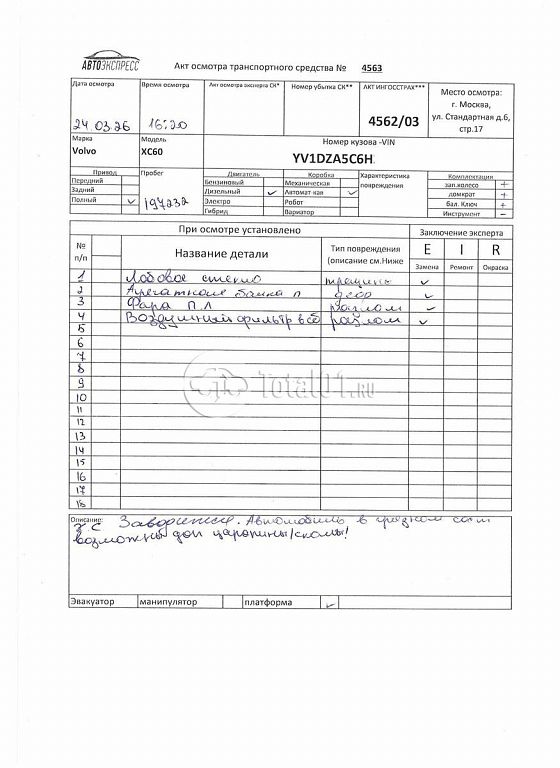 АВТОЭКСПРЕСС
Акт осмотра транспортного средства № 4563
Дата осмотра
Время осмотра
Акт осмотра эксперта СК*
Номер убытка СК**
АКТ ИНГОССТРАХ***
Место осмотра:
г. Москва,
ул. Стандартная д.6,
стр.17
24.03.26
16:20
4562/03
Марка
Модель
Номер кузова -VIN
Volvo
XC60
YV1DZA5C6H
Привод
Пробег
Двигатель
Коробка
Характеристика повреждения
Комплектация
Передний
Бензиновый
Механическая
зап.колесо +
Задний
Дизельный ✓
Автомат кая ✓
домкрат +
Полный ✓
197232
Электро
Робот
бал. Ключ +
Гибрид
Вариатор
Инструмент −
При осмотре установлено
Заключение эксперта
№ п/п
Название детали
Тип повреждения (описание см.Ниже
E I R
Замена Ремонт Окраска
1 Лобовое стекло трещины ✓
2 бачка п ✓
3 Фара П.Л разлом ✓
4 Воздушный фильтр в сб разлом ✓
5
6
7
8
9
10
11
12
13
14
15
16
17
18
Total01.RU
Описание:
Автомобиль в грязном
возможны доп царапины/сколы!
Эвакуатор манипулятор платформа ✓